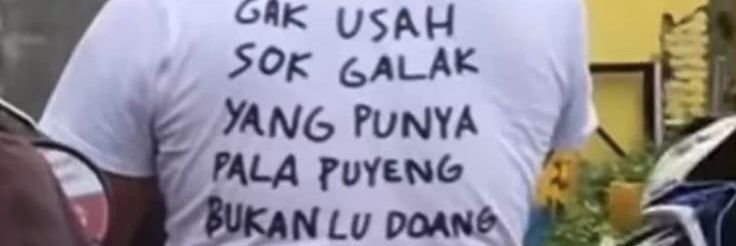 GAK USAH
SOK GALAK
YANG PUNYA
PALA PUYENG
BUKAN LU DOANG